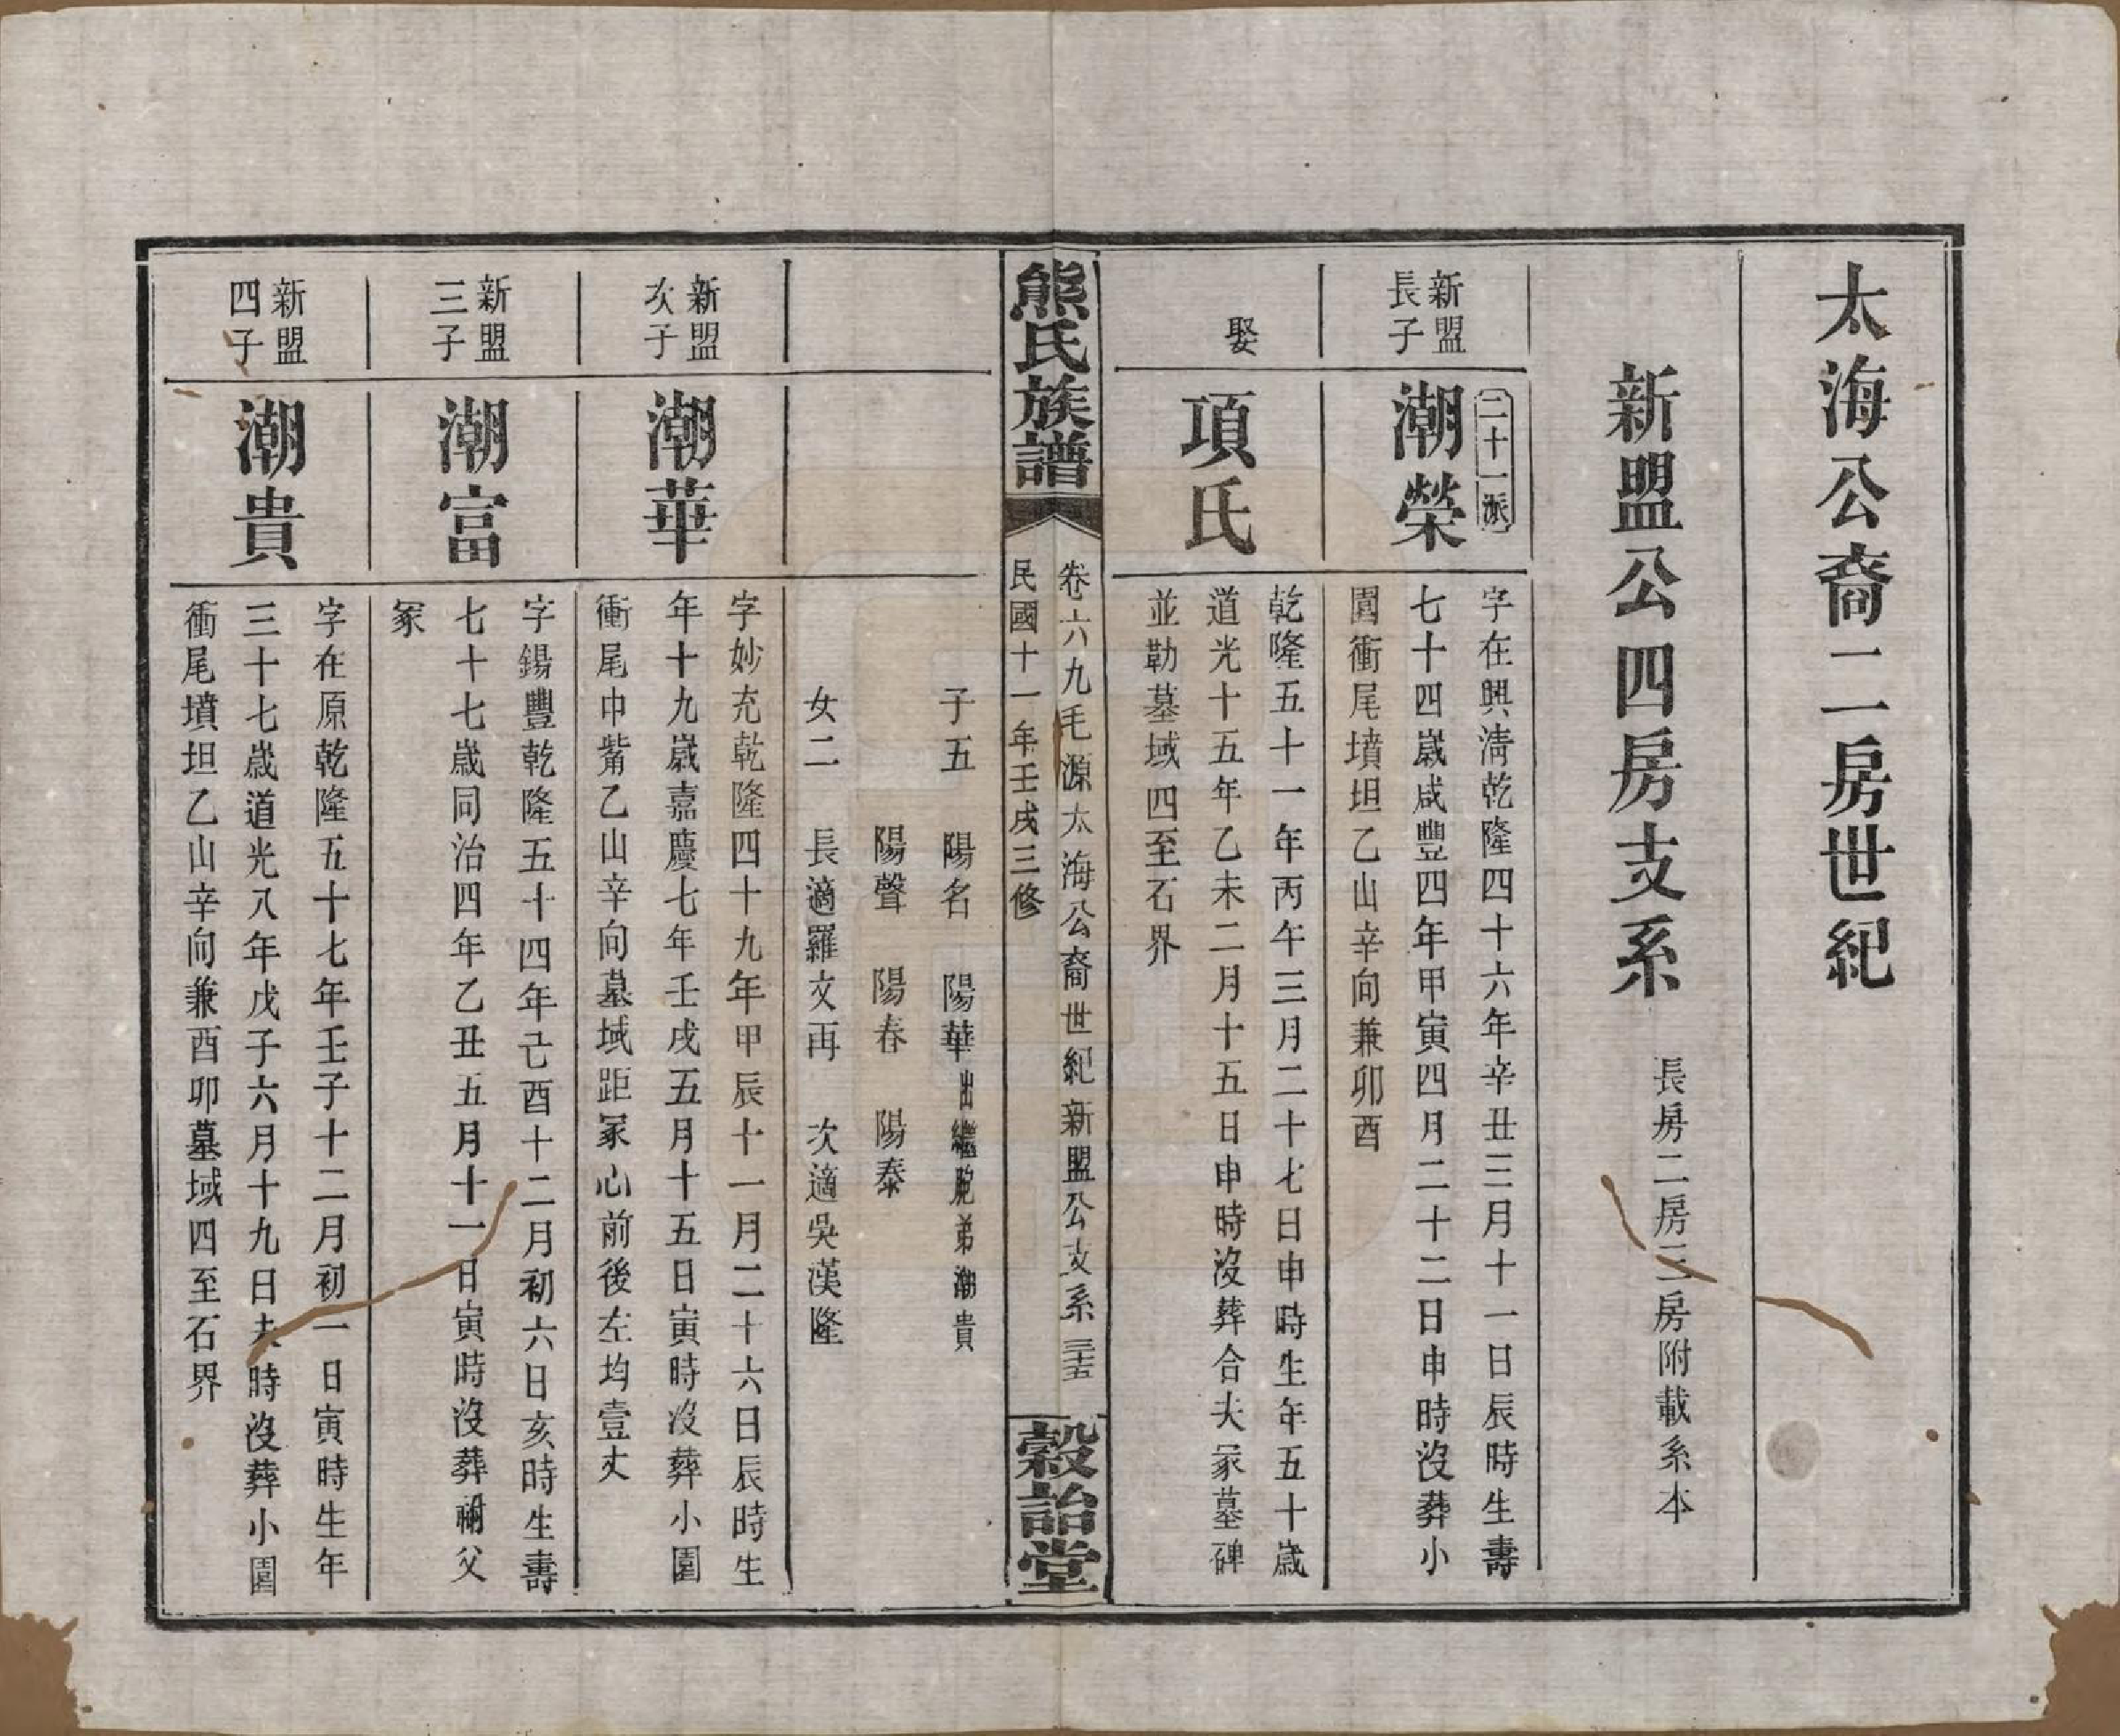 太海公裔二房世紀
新盟公四房支系　長房二房三房附載系本
新盟
長子
二十一派
潮榮
字在興清乾隆四十六年辛丑三月十一日辰時生壽
七十四歲咸豐四年甲寅四月二十二日申時沒葬小
園衝尾墳坦乙山辛向兼卯酉
娶
項氏
乾隆五十一年丙午三月二十七日申時生年五十歲
道光十五年乙未二月十五日申時沒葬合夫冢墓碑
並勒墓域四至石界
熊氏族譜
卷六九毛源太海公裔世紀新盟公支系 三十五
民國十一年壬戌三修
穀詒堂
子五　陽名　陽華出繼胞弟潮貴
陽聲　陽春　陽泰
女二　長適羅文再　次適吳漢隆
新盟
次子
潮華
字妙充乾隆四十九年甲辰十一月二十六日辰時生
年十九歲嘉慶七年壬戌五月十五日寅時沒葬小園
衝尾中觜乙山辛向墓域距冢心前後左均壹丈
新盟
三子
潮富
字錫豐乾隆五十四年己酉十二月初六日亥時生壽
七十七歲同治四年乙丑五月十一日寅時沒葬祔父
冢
新盟
四子
潮貴
字在原乾隆五十七年壬子十二月初一日寅時生年
三十七歲道光八年戊子六月十九日未時沒葬小園
衝尾墳坦乙山辛向兼酉卯墓域四至石界